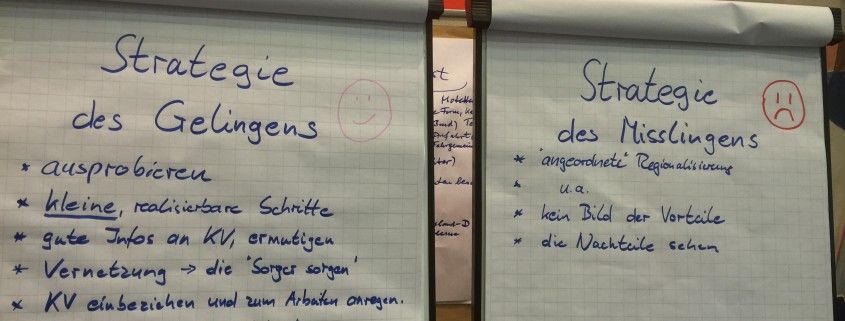 Strategie
des Gelingens
* ausprobieren
* kleine, realisierbare Schritte
* gute Infos an KV, ermutigen
* Vernetzung → die "Sorger sorgen"
* KV einbeziehen und zum Arbeiten anregen.
Strategie
des Misslingens
* "angeordnete" Regionalisierung
* u.a.
* kein Bild der Vorteile
* die Nachteile sehen